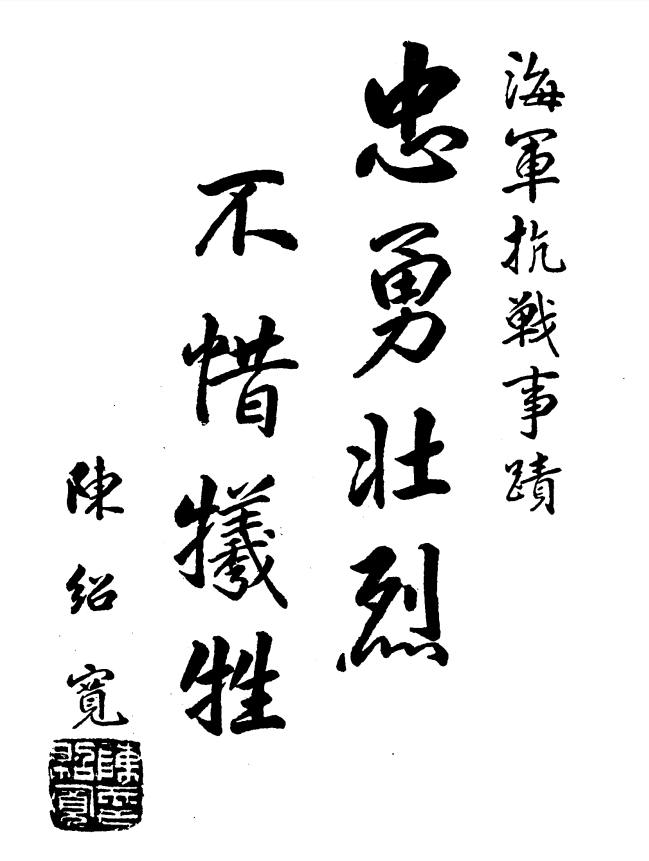 海軍抗戰事蹟
忠勇壯烈
不惜犧牲
陳紹寬
陳紹寬印